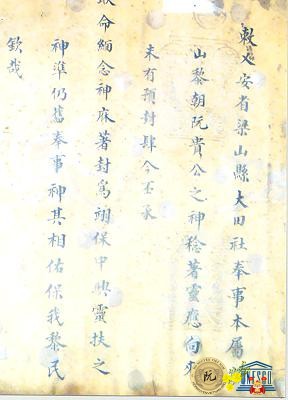 敕乂安省梁山縣大田社奉事本屬
山黎朝阮貴公之神稔著靈應向來
未有預封肆今丕承
耿命緬念神庥著封為翊保中興靈扶之
神準仍舊奉事神其相佑保我黎民
欽哉
阮
UNESCO